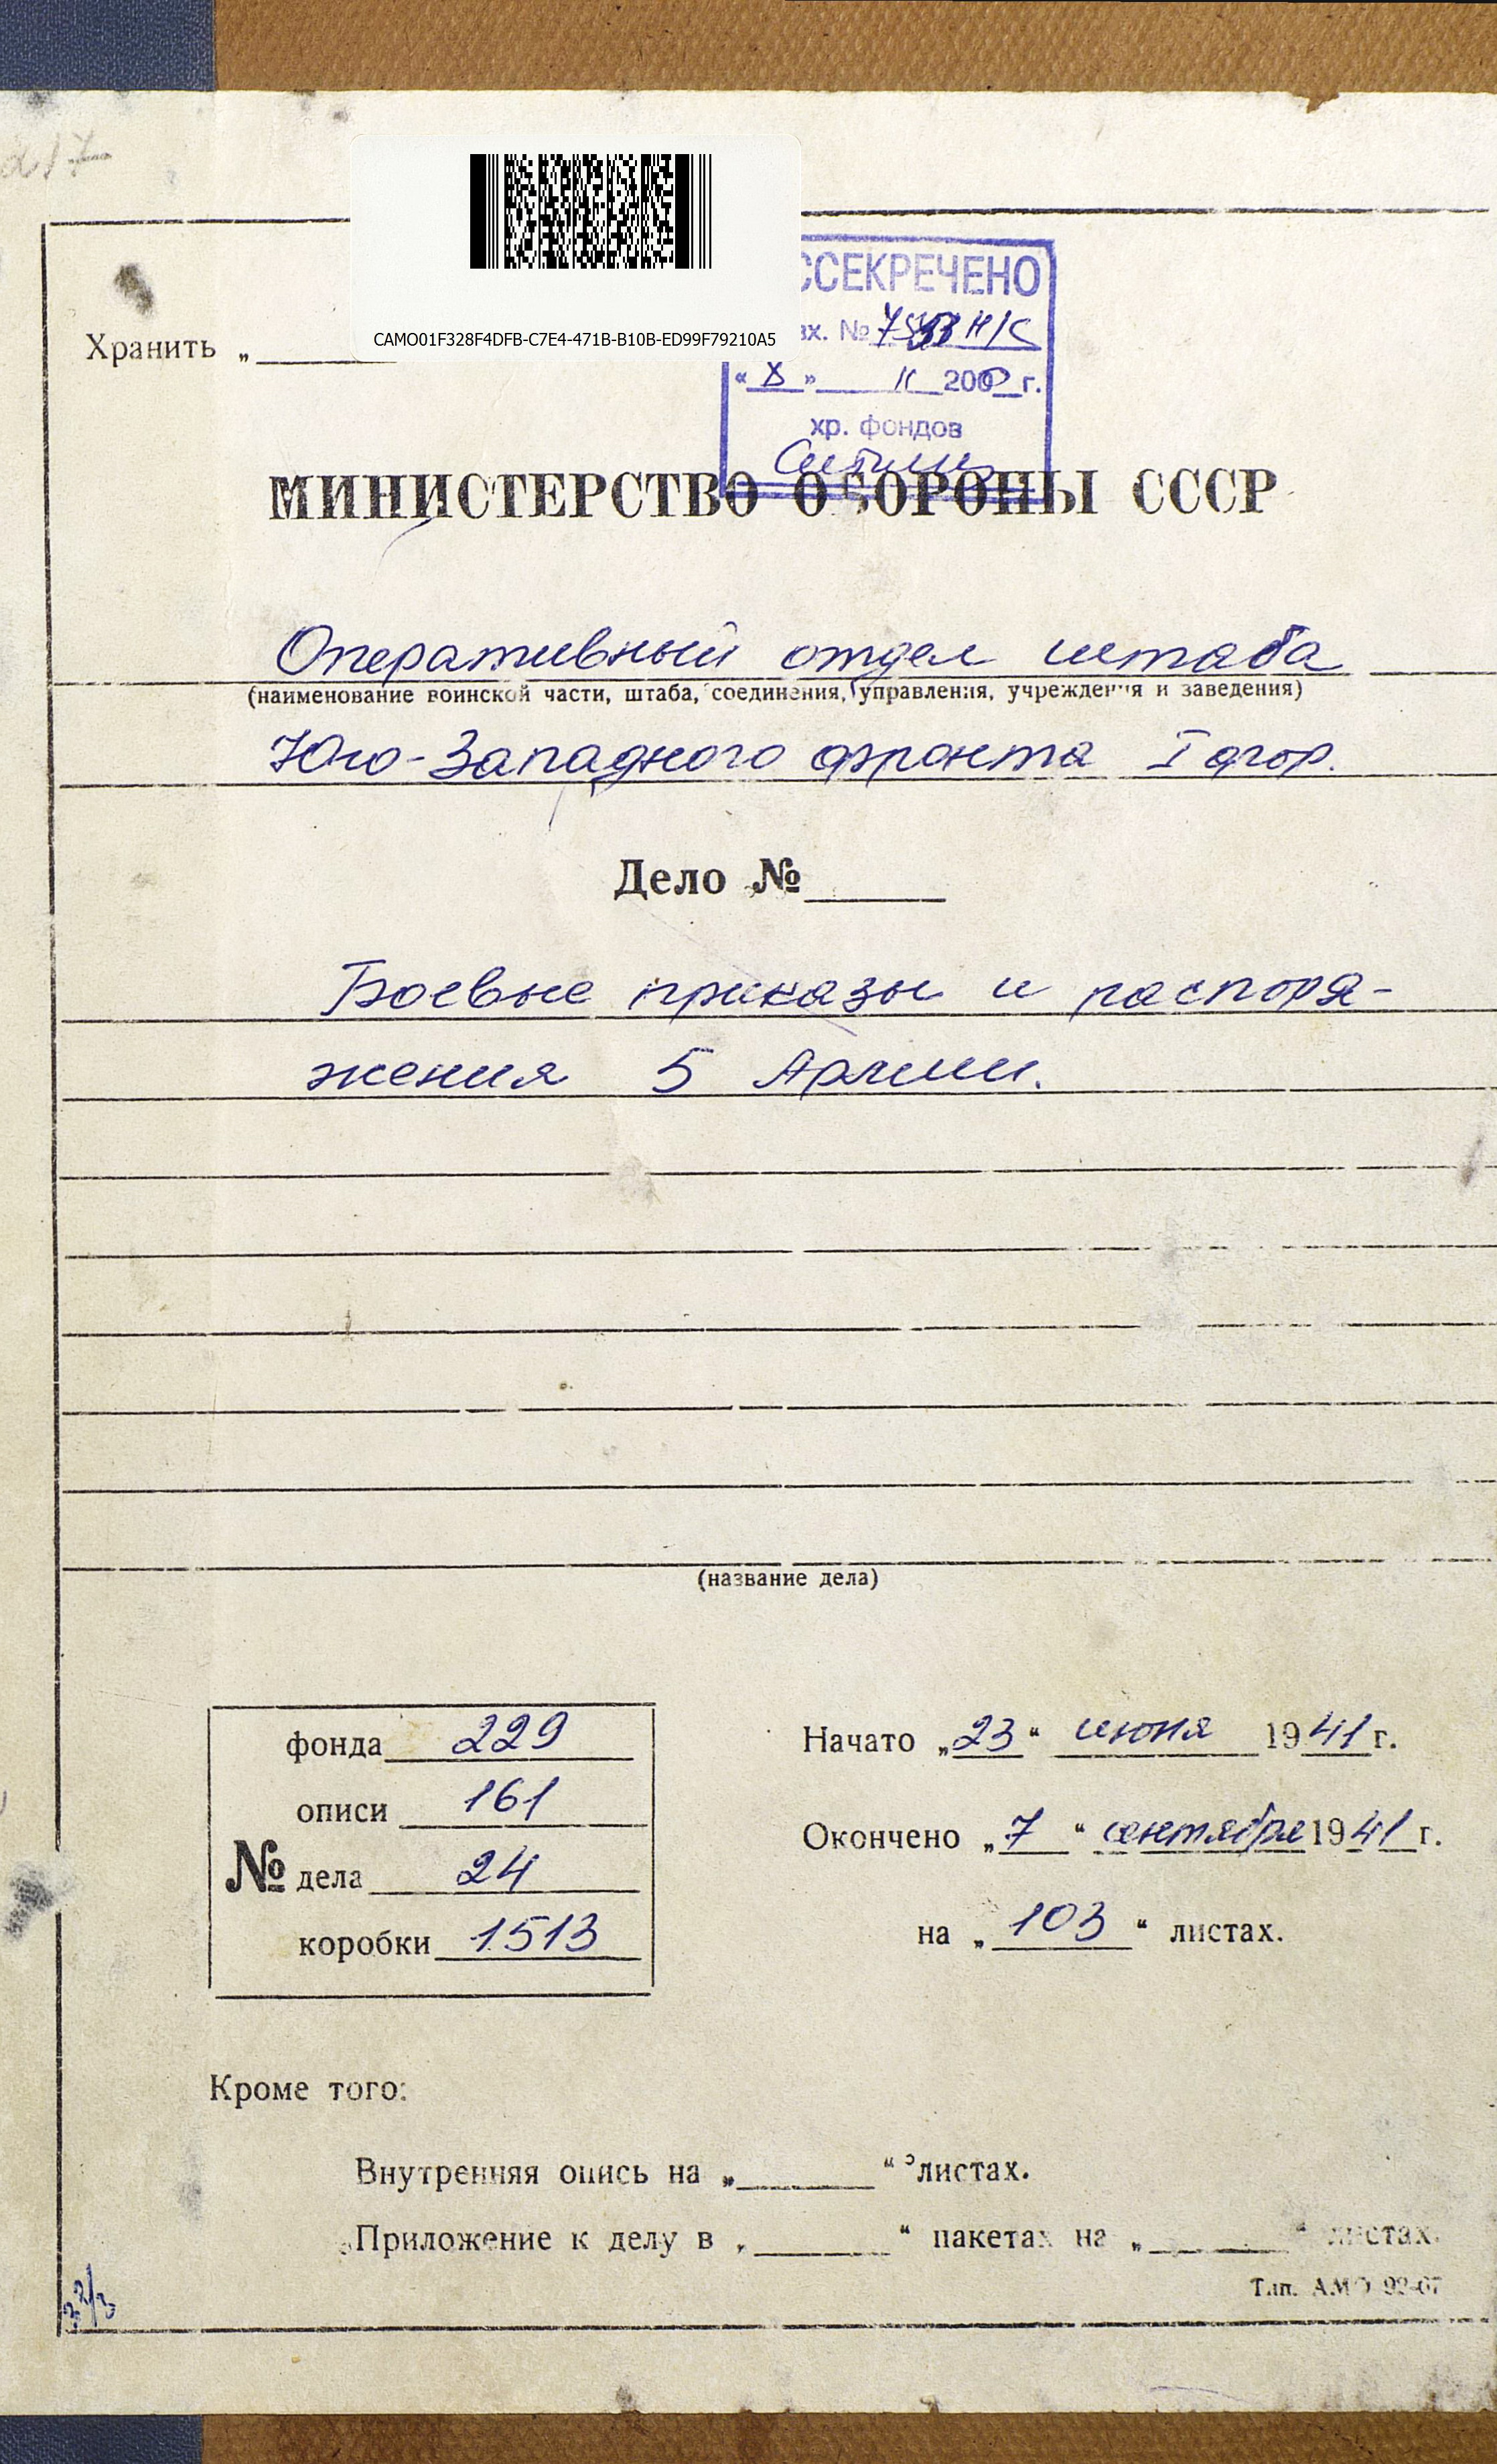 CAMO01F328F4DFB-C7E4-471B-B10B-ED99F79210A5
ССЕКРЕЧЕНО
ах. № н/с
« » II 200 г.
хр. фондов
Хранить „
МИНИСТЕРСТВО ОБОРОНЫ СССР
Оперативный отдел штаба
(наименование воинской части, штаба, соединения, управления, учреждения и заведения)
Юго-Западного фронта I фор.
Дело №
Боевые приказы и распоря-
жения 5 Армии.
(название дела)
фонда 229
описи 161
№ дела 24
коробки 1513
Начато „23“ июня 1941 г.
Окончено „7“ сентября 1941 г.
на „103“ листах.
Кроме того:
Внутренняя опись на „ “ листах.
Приложение к делу в „ “ пакетах на „ “ листах.
Тип. АМО 92-67